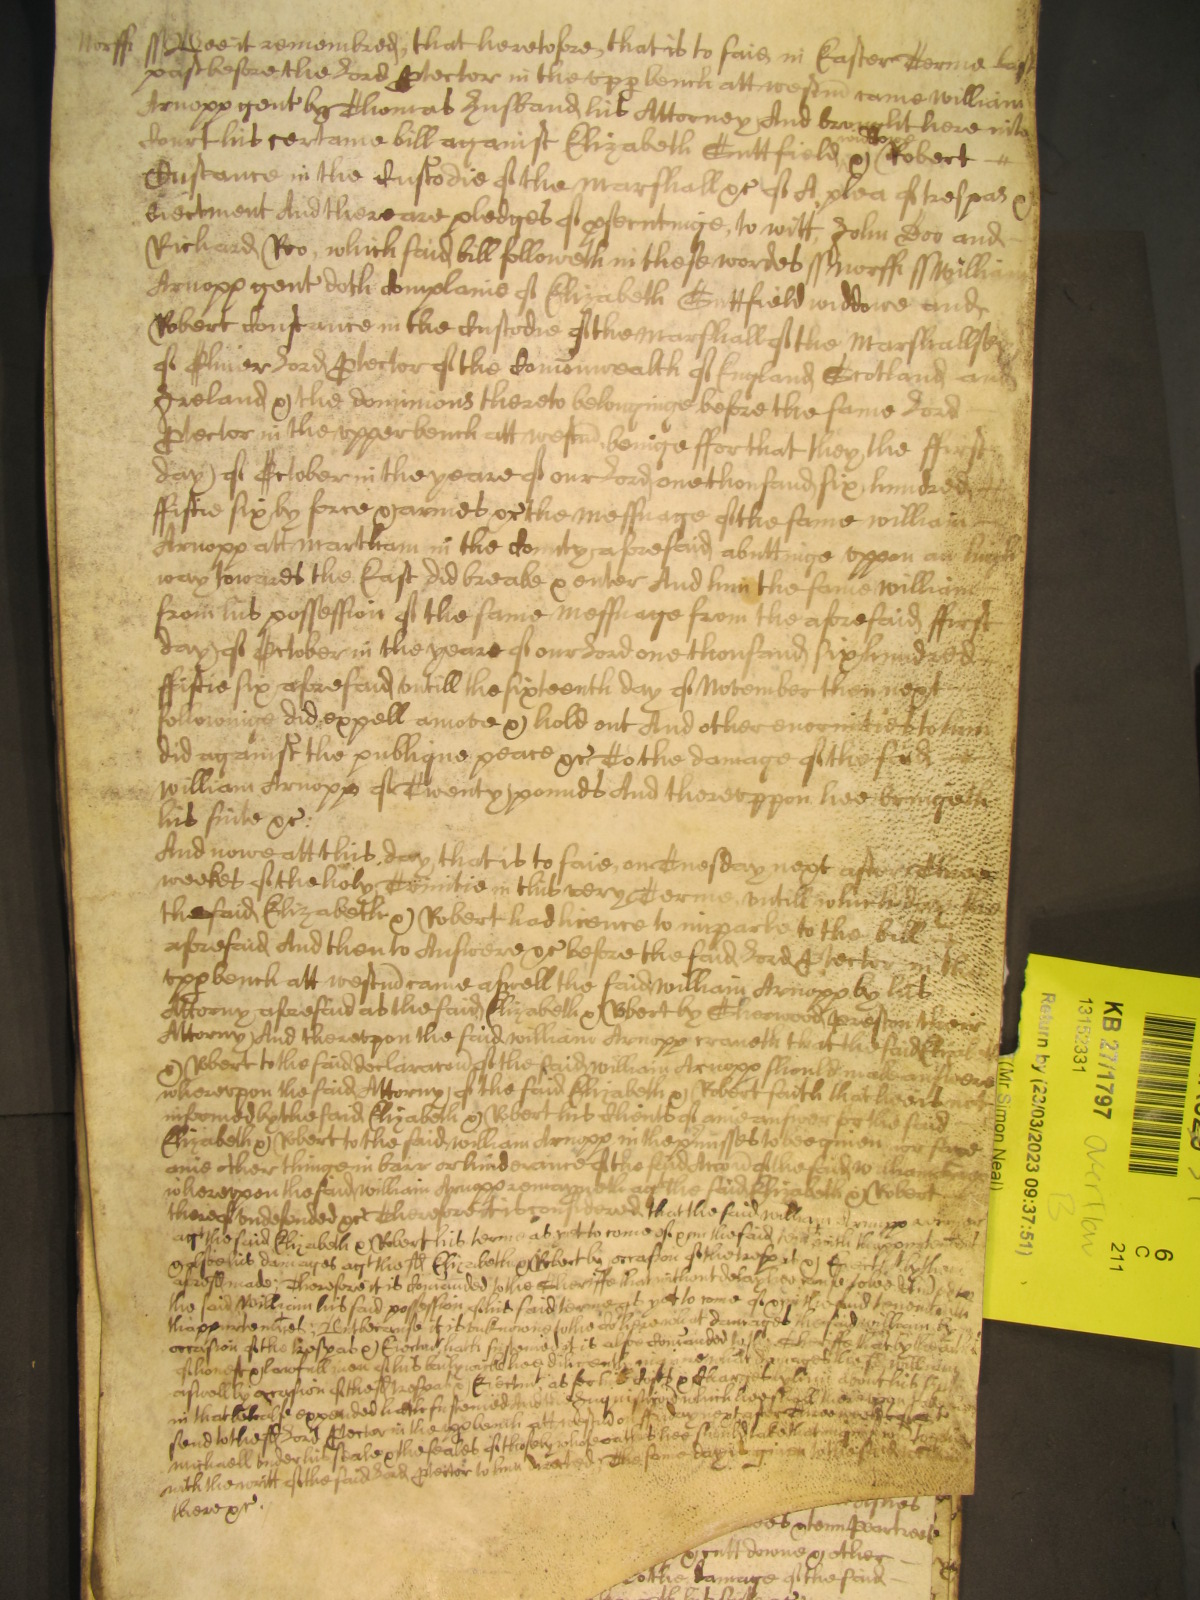 Norff ss Bee it remembred, that heretofore, that is to saie, in Easter Terme last
past before the Lord Ptector in the upp bench att westm̃ came William
Arnopp gent by Thomas Husband, his Attorney, And brought here into
Court his certaine bill against Elizabeth Cuttfield widdowe & Robert
Custance in the Custodie of the Marshall &c of A plea of trespas &
Eiectment And there are pledges of psecutinge, to witt, John Doo and
Richard Roo, which said bill followeth in these wordes ss Norff ss William
Arnopp gent doth complaine of Elizabeth Cuttfield widdowe and
Robert Constance in the Custodie of the Marshall of the Marshallsey
of Oliver Lord Ptector of the Comonwealth of England Scotland and
Ireland & the dominions thereto belonginge before the same Lord
Ptector in the upper bench att westm̃ beinge ffor that they, the ffirst
day of October in the yeare of our Lord one thousand six hundred
ffiftie six by force & armes &c the messuage of the same william
Arnopp att Martham in the County aforesaid abuttinge uppon an high
way towards the East did breake & enter And him the same william
from his possession of the same messuage from the aforesaid ffirst
day of October in the yeare of our Lord one thousand six hundred
ffiftie six aforesaid untill the sixteenth day of November then next
followinge did expell amove & hold out And other enormities to him
did against the publique peace &c To the damage of the said
william Arnopp of Twenty pounds And thereuppon hee bringeth
his suite &c:
And nowe att this day, that is to saie, on Tuesday next after Three
weekes of the holy Trinitie in this very Terme, untill which day the
the said Elizabeth & Robert had licence to imparle to the bill
aforesaid And then to Answere &c before the said Lord Ptector in the
upp bench att westm̃ came aswell the said william Arnopp by his
Attorny aforesaid as the said Elizabeth & Robert by Preston their
Attorny And thereupon the said william Arnopp craveth that the said Elizabeth
& Robert to the said declaracon of the said william Arnopp should make answere
whereupon the said Attorny of the said Elizabeth & Robert saith that hee is not
informed by the said Elizabeth & Robert his Clients of anie answer for the said
Elizabeth & Robert to the said william Arnopp in the pmisses to bee given nor saye
anie other thinge in barr or hinderance of the said Accon of the said william
whereupon the said william Arnopp remayneth agt the said Elizabeth & Robert
thereof undefended &c Therefore it is considered that the said william Arnopp recover
agt the said Elizabeth & Robert his terme as yet to come of & in the said with thappurtenances
& also his damages agt the sd Elizabeth & Robert by occasion of the trespas & Eiectmt by them
aforesd made: Therefore it is comanded to the Sheriffe that without delay
the said William his said possession of his said terme as yet to come of & in the said tenements
thappurtenances: But because it is unknowne to the Court what damages the said william by
occasion of the trespas & Eiectmt hath susteined it is also comanded to the Sheriffe that by
of honest & lawfull men of his bailywicke hee diligently inquire what damages the sd william
aswell by occasion of the sd trespas & Eiectmt as for his Costs & Charges by him about his suite
in that behalfe expended hath susteined And the Inquisition which hee shall thereupon
send to the sd Lord Ptector in the upp bench att westm̃ on next after Three weekes of
Michaell under his seale & the seales of those by whose oathes hee should take that
with the writt of the said Lord Ptector to him directed The same day is given to the said
there &c.
& cutt downe & other
to the damage of the said
KB 27/1797
13152331
Return by (23/03/2023 09:37:51)
(Mr Simon Neal)
6
C
211